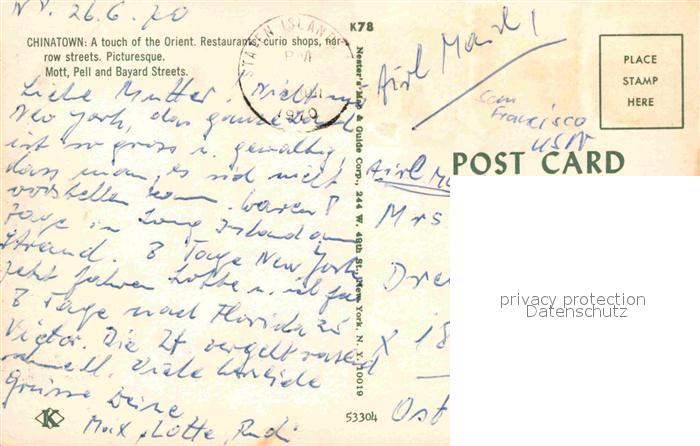 NY. 26.6.70
K78
CHINATOWN: A touch of the Orient. Restaurants, curio shops, nar-
row streets. Picturesque.
Mott, Pell and Bayard Streets.
STATEN ISLAND
PM
1970
Liebe Mutter. Nicht nur
New York, das ganze Land
ist so gross u. gewaltig,
dass man es sich nicht
vorstellen kann. Waren 8
Tage in Long Island am
Strand. 8 Tage New York,
jetzt fahren Lotte u. ich für
8 Tage nach Florida zu
Victor. Die Zt. vergeht rasend
schnell. Viele herzliche
Grüsse Deine
Max, Lotte, Rudi
K
Nester's Map & Guide Corp., 244 W. 49th St., New York, N. Y. 10019
53304
Airl Mail!
PLACE
STAMP
HERE
san
Francisco
USA
POST CARD
Airl
Mrs
Dre
X 18
Ost
privacy protection
Datenschutz